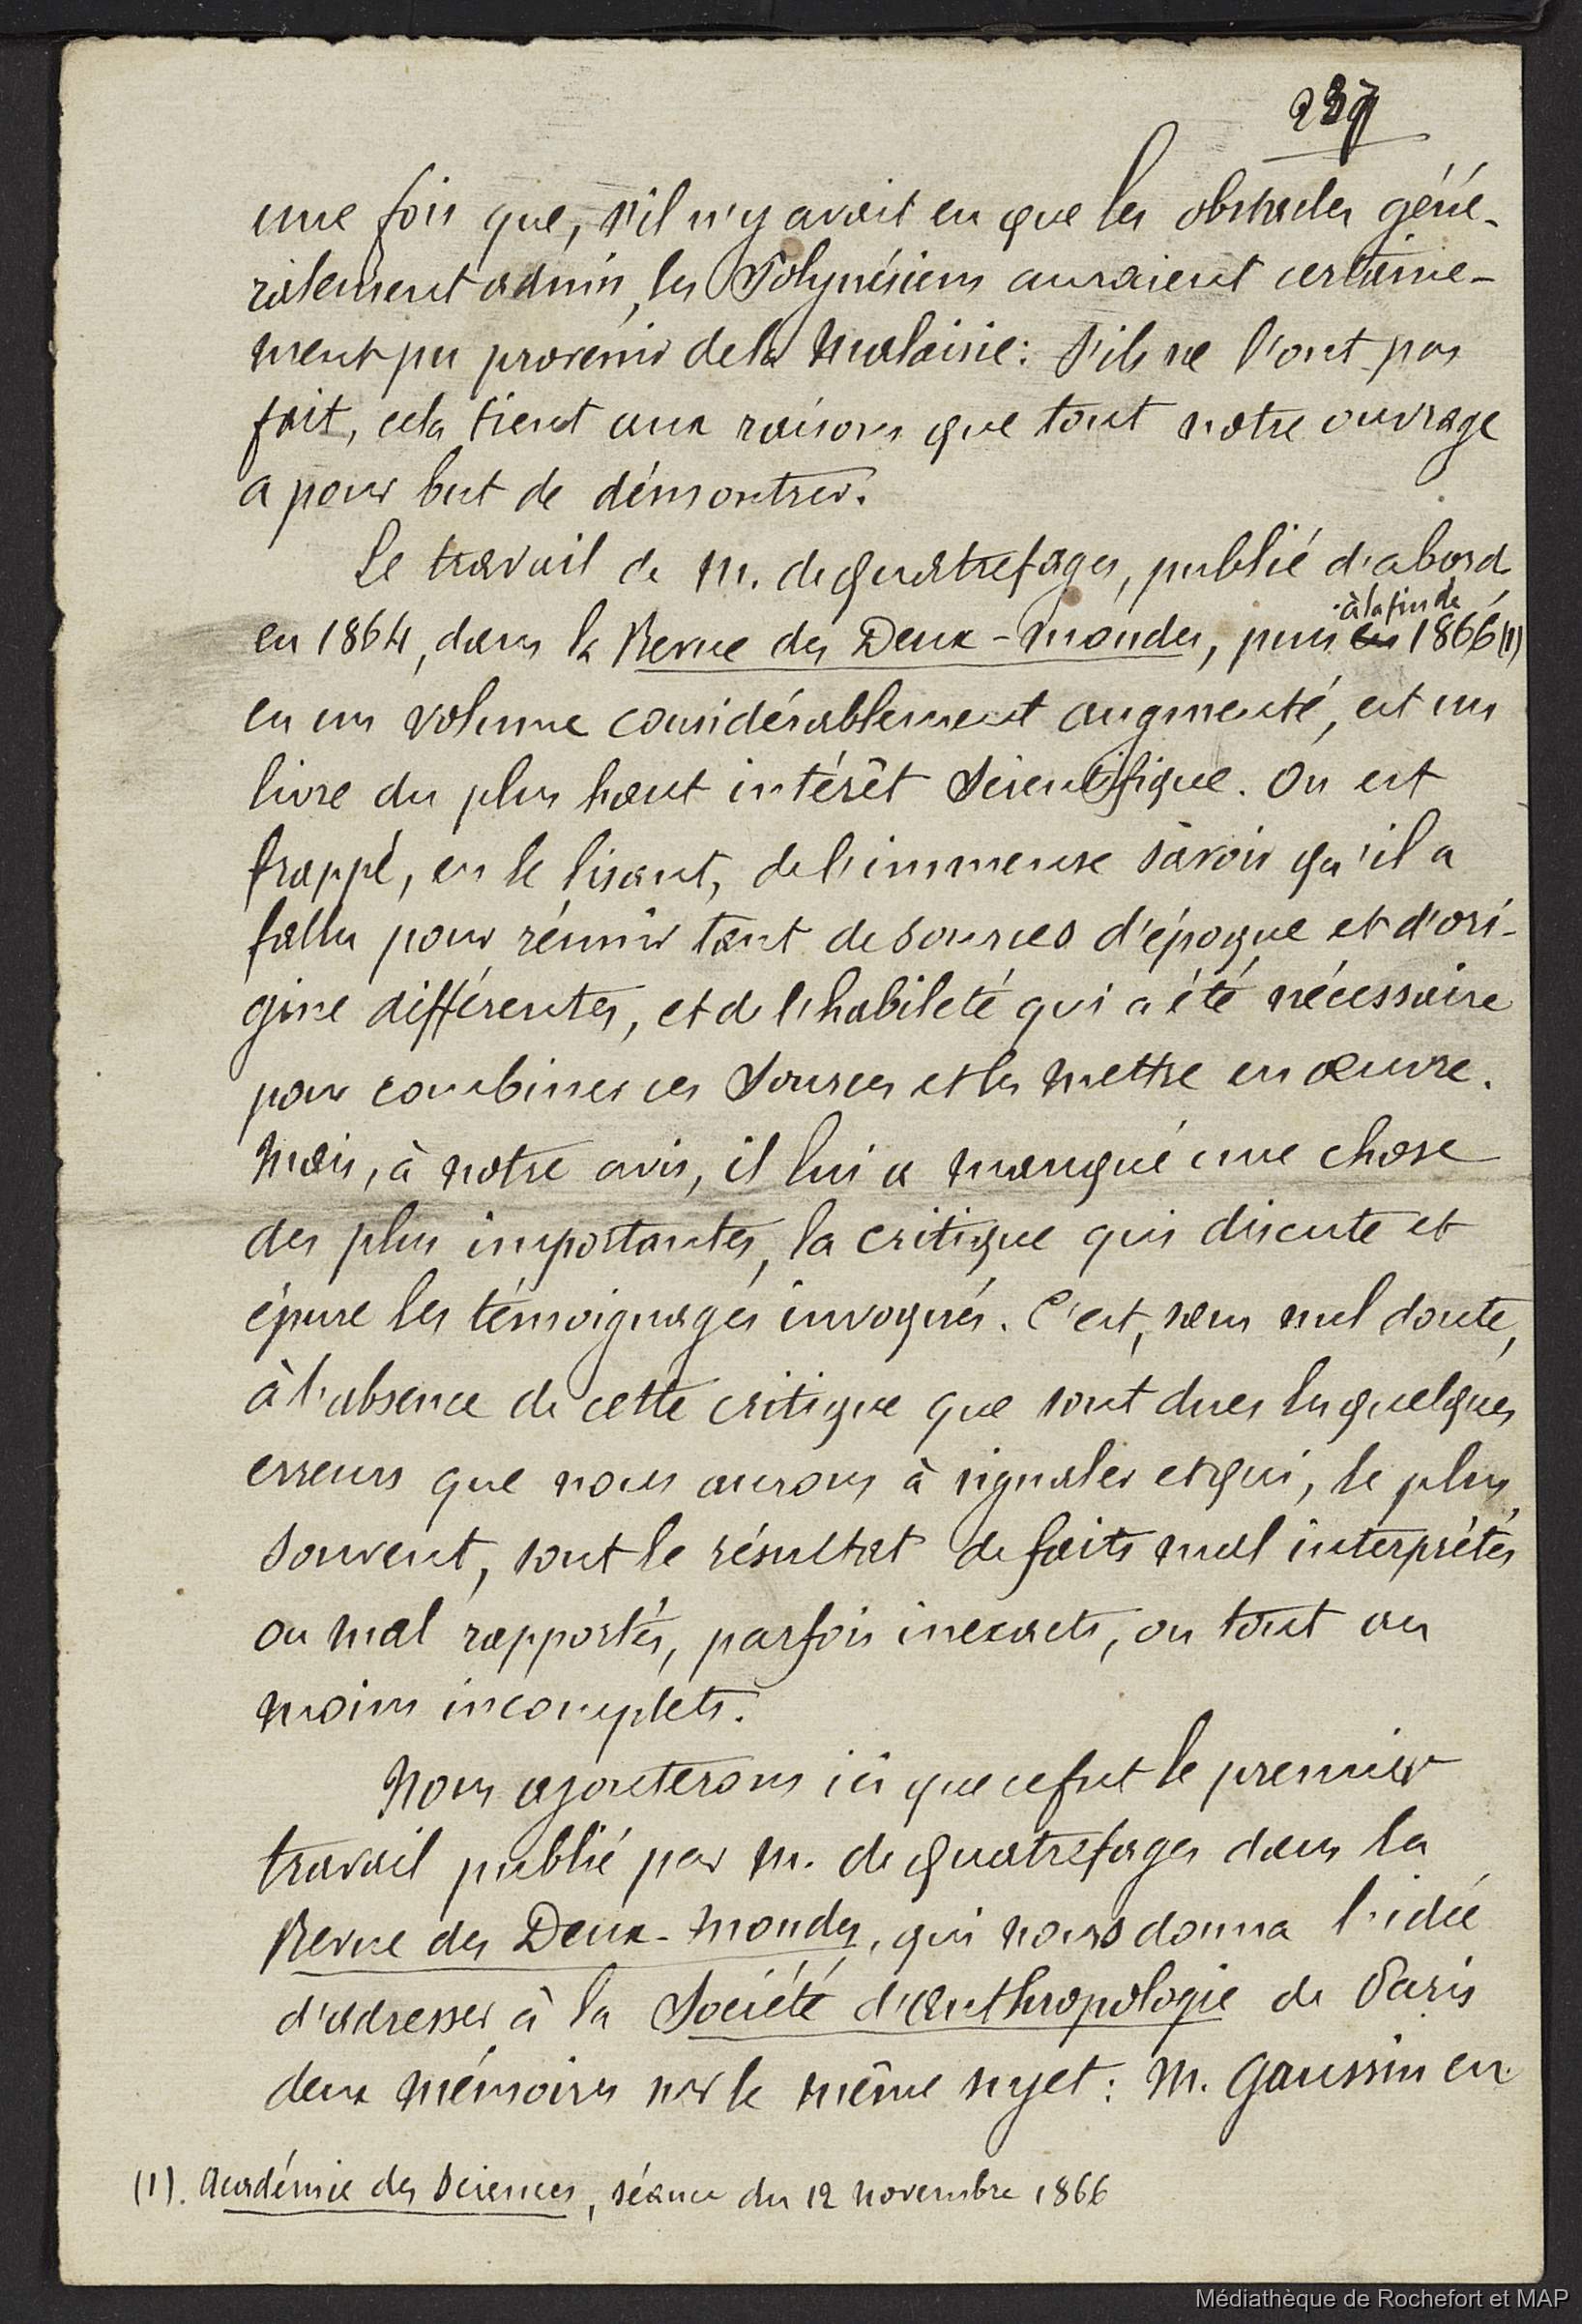 237
une fois que, s'il n'y avait eu que les obstacles géné-
ralement admis, les Polynésiens auraient certaine-
ment pu provenir de la Malaisie: s'ils ne l'ont pas
fait, cela tient aux raisons que tout notre ouvrage
a pour but de démontrer.
Le travail de M. de Quatrefages, publié d'abord
à la fin de
en 1864, dans la Revue des Deux-Mondes, puis en 1866 (1)
en un volume considérablement augmenté, est un
livre du plus haut intérêt scientifique. On est
frappé, en le lisant, de l'immense savoir qu'il a
fallu pour réunir tant de sources d'époque et d'ori-
gine différentes, et de l'habileté qui a été nécessaire
pour combiner ces sources et les mettre en œuvre.
Mais, à notre avis, il lui a manqué une chose
des plus importantes, la critique qui discute et
épure les témoignages invoqués. C'est, sans nul doute,
à l'absence de cette critique que sont dues les quelques
erreurs que nous aurons à signaler et qui, le plus
souvent, sont le résultat de faits mal interprétés
ou mal rapportés, parfois inexacts, ou tout au
moins incomplets.
Nous ajouterons ici que ce fut le premier
travail publié par M. de Quatrefages dans la
Revue des Deux-Mondes, qui nous donna l'idée
d'adresser à la Société d'Anthropologie de Paris
deux mémoires sur le même sujet: M. Gaussin en
(1). Académie des Sciences, séance du 12 novembre 1866
Médiathèque de Rochefort et MAP